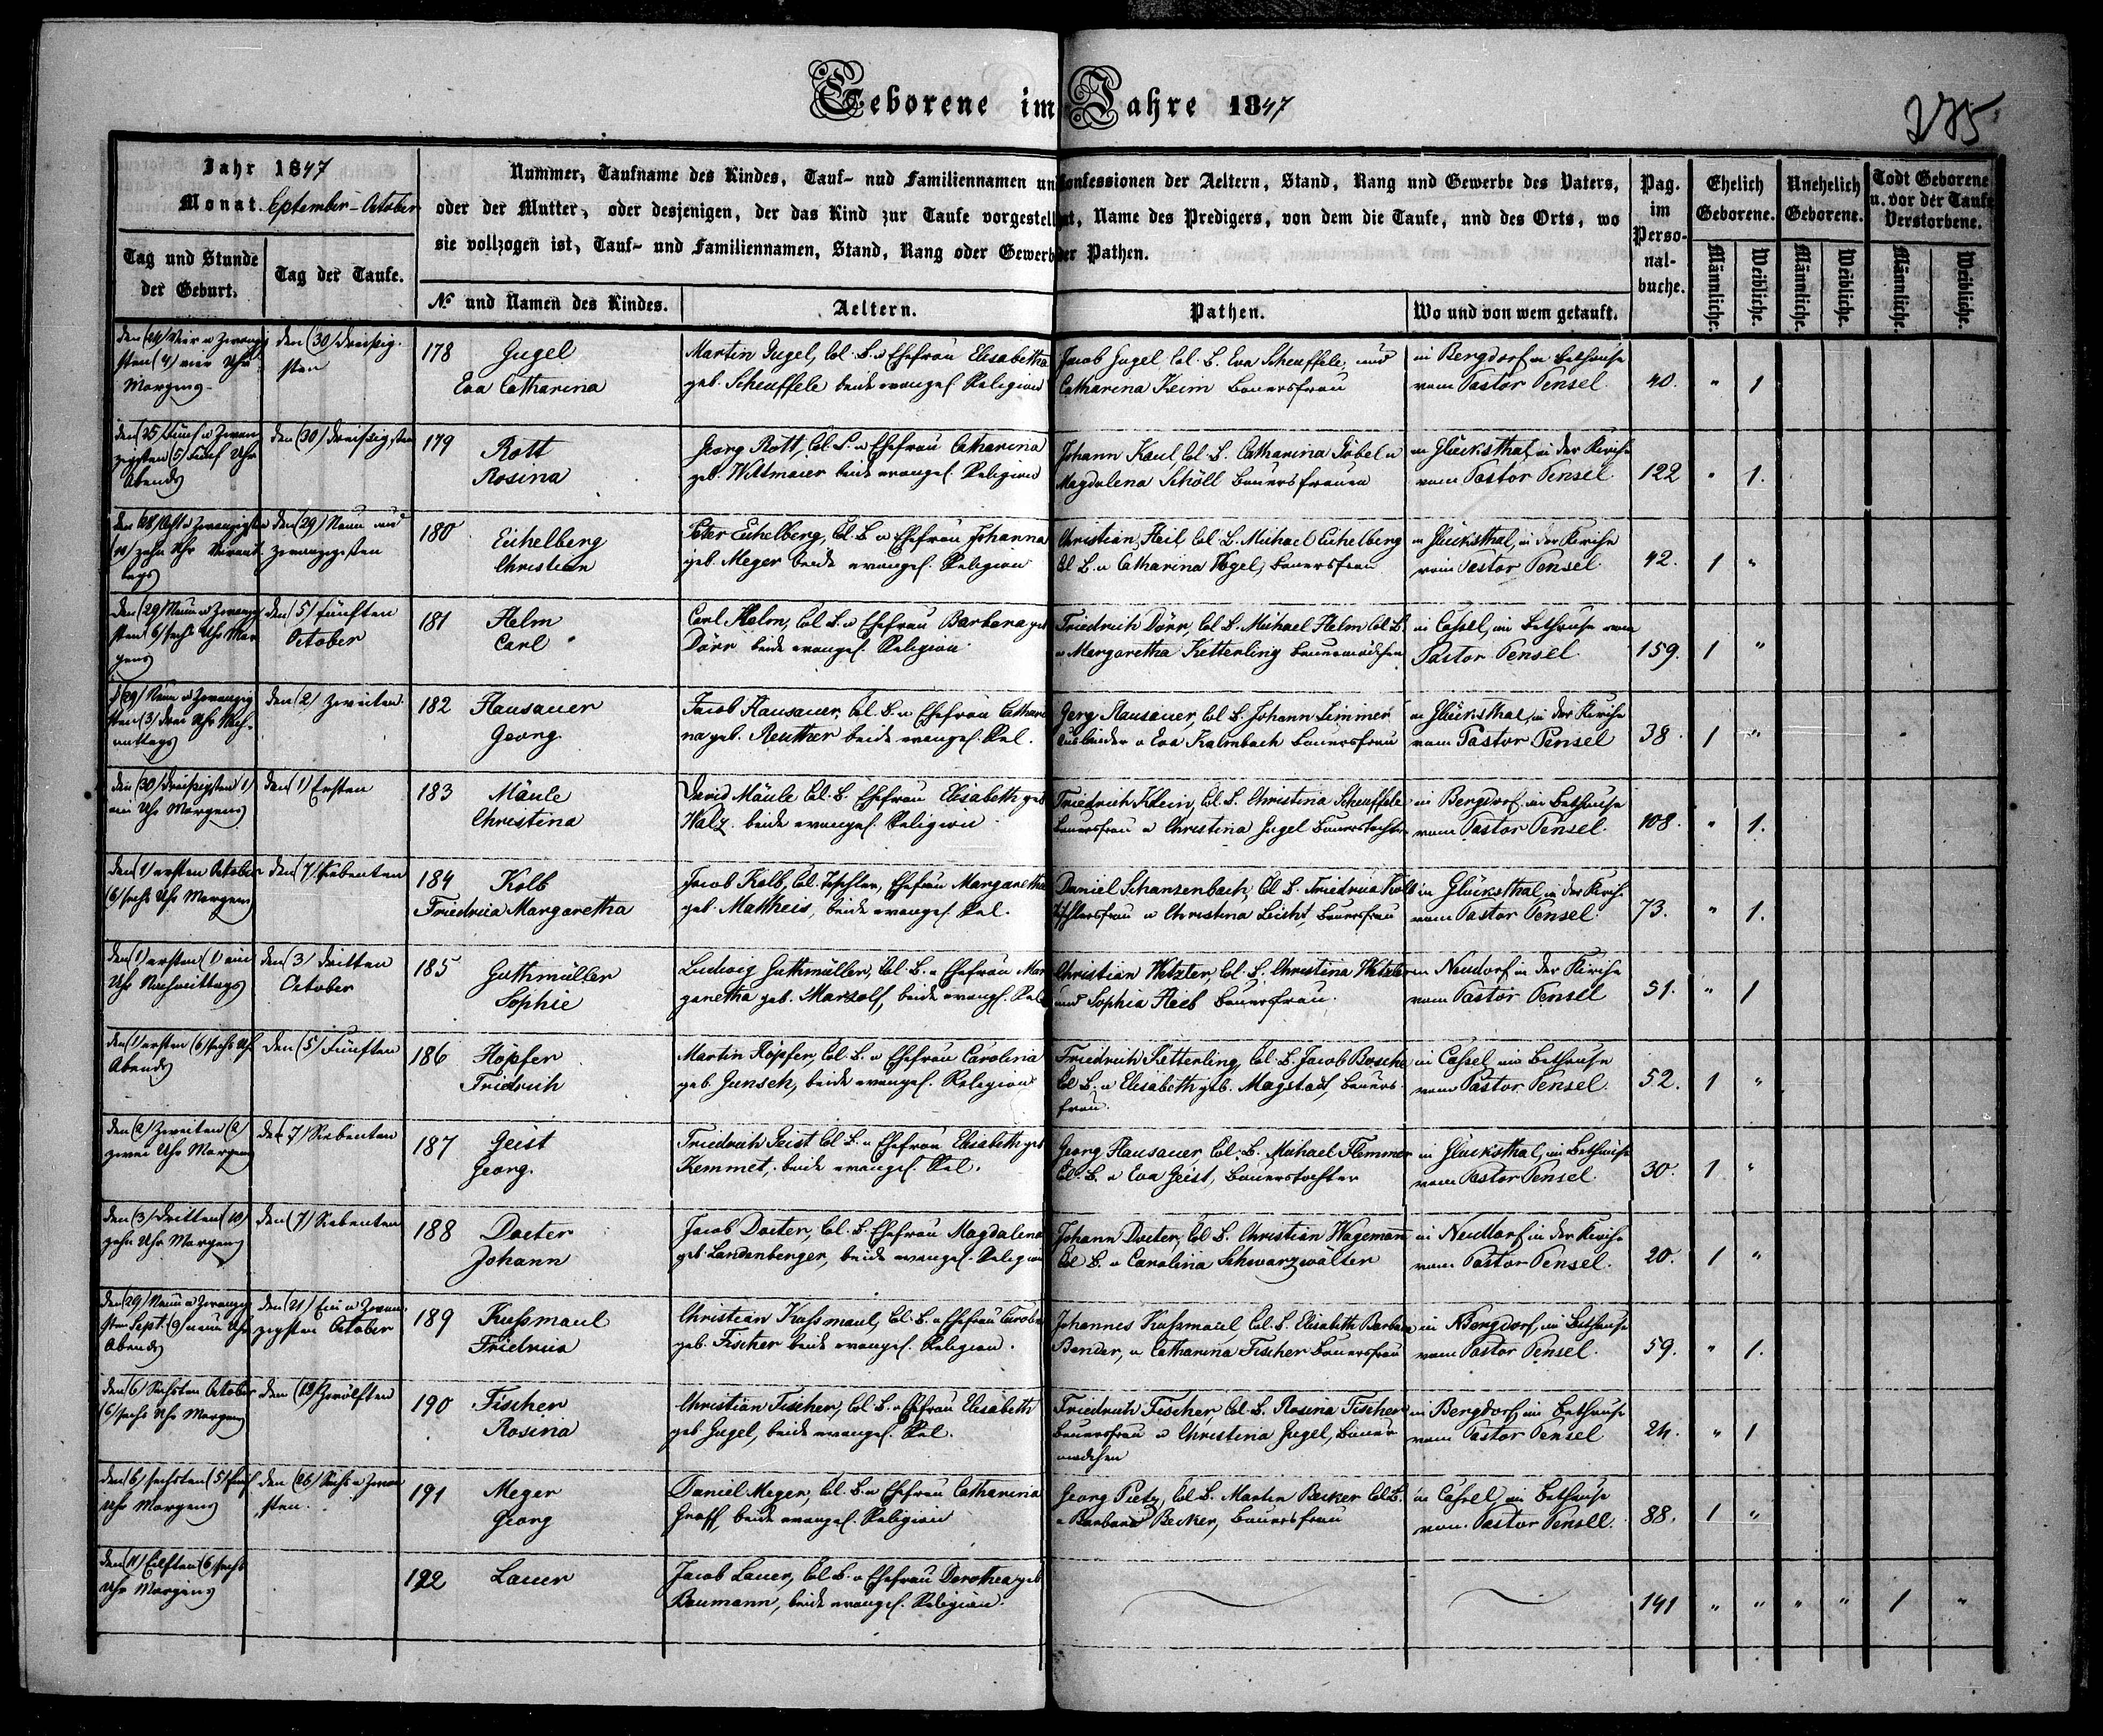 Geborene im Jahre 1847
285
Jahr 1847
Monat September-October
Nummer, Taufname des Kindes, Tauf- und Familiennamen und Confessionen der Aeltern, Stand, Rang und Gewerbe des Vaters,
oder der Mutter, oder desjenigen, der das Kind zur Taufe vorgestellt hat, Name des Predigers, von dem die Taufe, und des Orts, wo
sie vollzogen ist, Tauf- und Familiennamen, Stand, Rang oder Gewerb der Pathen.
Tag und Stunde der Geburt.
Tag der Taufe.
№ und Namen des Kindes.
Aeltern.
Pathen.
Wo und von wem getauft.
Pag. im Perso-nal-buche.
Ehelich Geborene.
Unehelich Geborene.
Todt Geborene u. vor der Taufe Verstorbene.
Männliche. Weibliche. Männliche. Weibliche. Männliche. Weibliche.
den (24) Vier u Zwanzig den (30) dreißig- 178 Gugel Martin Gugel, Col. L. u Ehefrau Elisabetha Jacob Gugel Col. L. Eva Scheuffele, und in Bergdorf im Bethause
sten (4) vier Uhr sten Eva Catharina geb. Scheuffele beide evangel. Religion Catharina Keim Bauersfrau vom Pastor Pensel 40. " 1
Morgens
den (25) Fünf u Zwan- den (30) dreißigsten 179 Rott Georg Rott, Col. L. u Ehefrau Catharina Johann Kaul, Col. L. Catharina Göbel u in Glücksthal, in der Kirche
zigsten (5) Fünf Uhr Rosina geb. Wittmaier beide evangel. Religion Magdalena Schöll Bauersfrauen vom Pastor Pensel 122 " 1.
Abends
den (28) Acht u Zwanzigsten den (29) Neun und 180 Eichelberg Peter Eichelberg, Col. L. u Ehefrau Johanna Christian Heil Col. L. Michael Eichelberg in Glücksthal, in der Kirche
(10) zehn Uhr Vormit- zwanzigsten Christian geb. Meger beide evangel. Religion Col. L. u Catharina Vogel, Bauersfrau vom Pastor Pensel 42. 1 "
tags
den (29) Neun u Zwanzig den (5) fünften 181 Helm Carl Helm, Col. L. u Ehefrau Barbara geb Friedrich Dörr, Col. L. Michael Helm Col. L. in Cassel, im Bethause vom
sten (6) sechs Uhr Mor October Carl Dörr beide evangel. Religion u Margaretha Ketterling Bauermädchen Pastor Pensel. 159. 1 "
gens
d (29) Neun u Zwanzig den (2) Zweiten 182 Hausauer Jacob Hausauer, Col. L. u Ehefrau Cathari Georg Hausauer, Col. L. Johann Zimmer in Glücksthal, in der Kirche
sten (3) drei Uhr Nach- Georg na geb. Reuther beide evangel. Rel. Ausländer u Eva Kalmbach Bauersfrau vom Pastor Pensel 38. 1 "
mittags
den (30) dreißigsten (1) den (1) Ersten 183 Mäule David Mäule Col. L. Ehefrau Elisabeth geb Friedrich Klein, Col. L. Christina Scheuffele in Bergdorf im Bethause
ein Uhr Morgens Christina Walz beide evangel. Religion Bauersfrau u Christina Gugel Bauerstochter vom Pastor Pensel. 108. " 1.
den (1) ersten October den (7) Siebenten 184 Kolb Jacob Kolb, Col. Tischler, Ehefrau Margaretha Daniel Schanzenbach, Col. L. Friedrica Kolb in Glücksthal, in der Kirche
(6) sechs Uhr Morgens Friedrica Margaretha geb. Mattheis, beide evangel. Rel. Tischlersfrau u Christina Leicht, Bauersfrau vom Pastor Pensel. 73. " 1.
den (1) ersten (1) ein den (3) dritten 185 Guthmüller Ludwig Guthmüller, Col. L. u Ehefrau Mar Christian Wetzler, Col. L. Christina Wetzler in Neudorf in der Kirche
Uhr Nachmittags October Sophie garetha geb. Marzolf, beide evangel. Rel und Sophia Heib Bauersfrau. vom Pastor Pensel 51. " 1
den (1) ersten (6) sechs Uhr den (5) Fünften 186 Höpfer Martin Höpfer, Col. L. u Ehefrau Carolina Friedrich Ketterling, Col. L. Jacob Boschee in Cassel, im Bethause
Abends Fridrich geb. Gunsch, beide evangel. Religion Col L. u Elisabeth geb. Magstadt, Bauers- vom Pastor Pensel. 52. 1 "
frau.
den (2) Zweiten (2) den (7) Siebenten 187 Geist Friedrich Geist Col. L. u Ehefrau Elisabeth geb Georg Hausauer, Col. L. Michael Flemmer in Glücksthal, im Bethause
zwei Uhr Morgens Georg. Kemmet, beide evangel. Rel. Col. L. u Eva Geist, Bauerstochter vom Pastor Pensel 30. 1 "
den (3) dritten (10) den (7) Siebenten 188 Doeter Jacob Doeter, Col. L. Ehefrau Magdalena Johann Doeter, Col. L. Christian Wagemann in Neudorf in der Kirche
zehn Uhr Morgens Johann geb. Landenberger, beide evangel. Religion Col L. u Carolina Schwarzwälter vom Pastor Pensel. 20. 1 "
den (29) Neun u Zwanzig den (21) Ein u Zwan- 189 Kußmaul Christian Kußmaul, Col. L. u Ehefrau Carolin Johannes Kußmaul, Col. L. Elisabeth Barbara in Bergdorf, im Bethause
sten Sept. (9) neun Uhr zigsten October Fridrica geb. Fischer beide evangel. Religion. Bender, u Catharina Fischer Bauersfrau vom Pastor Pensel. 59. " 1.
Abends
den (6) Sechsten October den (12) Zwölften 190 Fischer Christian Fischer, Col. L. u Ehefrau Elisabeth Friedrich Fischer, Col. L. Rosina Fischer in Bergdorf, im Bethause
(6) sechs Uhr Morgens Rosina geb. Gugel, beide evangel. Rel. Bauersfrau u Christina Gugel, Bauer vom Pastor Pensel 24. " 1
mädchen
den (6) sechsten (5) fünf den (26) Sechs u Zwan 191 Meger Daniel Meger, Col. L. u Ehefrau Catharina Georg Pietz, Col. L. Martin Becker Col. L. in Cassel, im Bethause
Uhr Morgens sten. Georg Graff, beide evangel. Religion u Barbara Becker, Bauersfrau vom Pastor Pensel. 88. 1 "
den (11) Eilften (6) sechs 192 Lauer Jacob Lauer, Col. L. u Ehefrau Dorothea geb
Uhr Morgens Baumann, beide evangel. Religion. 141 " " " " 1 "